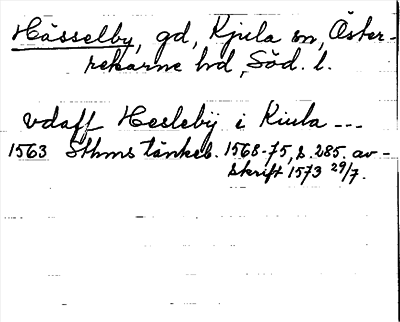 Hässelby, gd, Kjula sn, Öster-
rekarne hd, Söd. l.
vdaff Heslebÿ i Kiula ---
1563 Sthms tänkeb. 1568-75, s. 285. av-
skrift 1573 29/7.